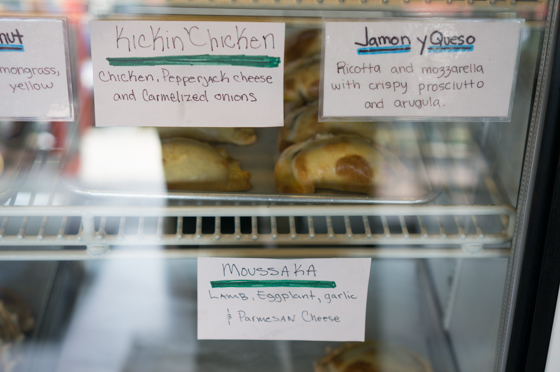 nut
mongrass,
yellow
Kickin' Chicken
Chicken, Pepperjack cheese
and Carmelized onions
Jamon y Queso
Ricotta and mozzarella
with crispy prosciutto
and arugula.
Moussaka
Lamb, Eggplant, garlic
& Parmesan Cheese